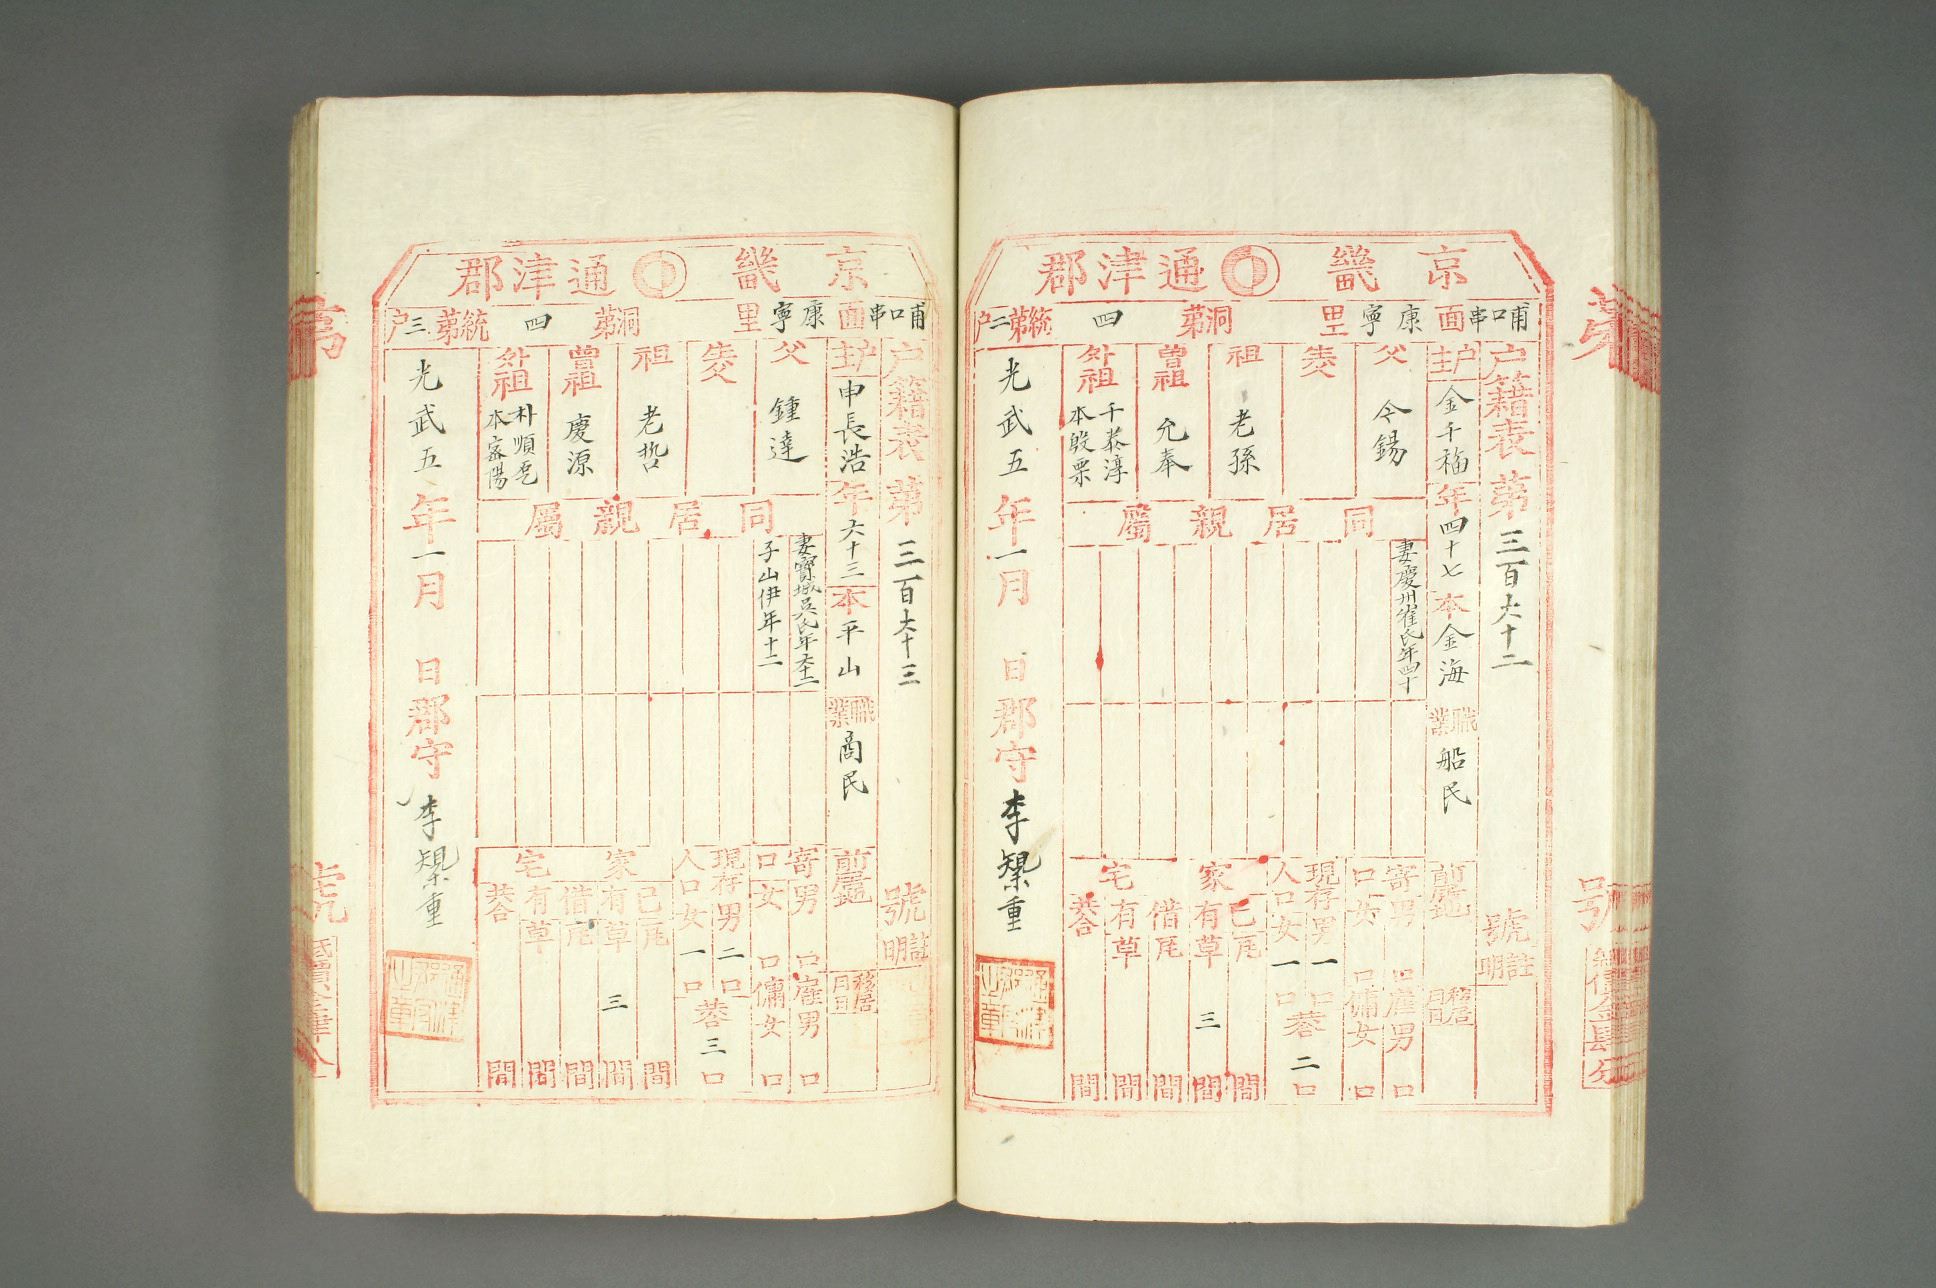 京畿 通津郡
哺口串面 康寧里 洞第四 統第二户
户籍表 第三百六十二 號
註明
户主 金千福 年四十七 本金海 職業 船民
前居地 移居月日
父 令錫
生父
祖 老孫
曾祖 允奉
外祖 千泰淳 本殷栗
同居親屬
妻慶州崔氏年四十
寄口 男 口 女 口
雇男 口 傭女 口
現存人口 男一口 女一口 共二口
家宅 己有 瓦 間 草三間 借有 瓦 間 草 間 共合 間
光武五年一月 日 郡守 李㮮重
京畿 通津郡
哺口串面 康寧里 洞第四 統第三户
户籍表 第三百六十三 號
註明
户主 申長浩 年六十三 本平山 職業 商民
前居地 移居月日
父 鍾達
生父
祖 老哲
曾祖 慶源
外祖 朴順 本密陽
同居親屬
妻寶城吳氏年六十二
子山伊年十二
寄口 男 口 女 口
雇男 口 傭女 口
現存人口 男二口 女一口 共三口
家宅 己有 瓦 間 草三間 借有 瓦 間 草 間 共合 間
光武五年一月 日 郡守 李 重